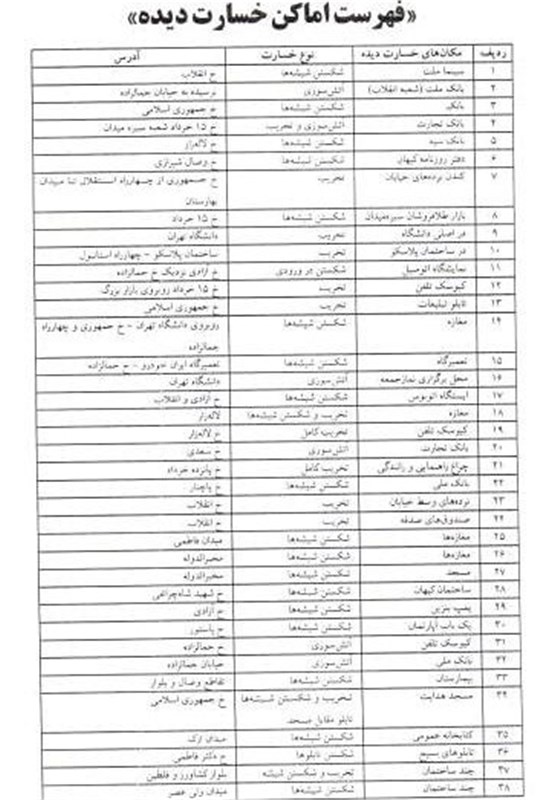 «فهرست اماکن خسارت دیده»
ردیف مکان‌های خسارت دیده نوع خسارت آدرس
۱ سینما ملت شکستن شیشه‌ها خ انقلاب
۲ بانک ملت (شعبه انقلاب) آتش‌سوزی نرسیده به خیابان جمالزاده
۳ بانک شکستن شیشه‌ها خ جمهوری اسلامی
۴ بانک تجارت آتش‌سوزی و تخریب خ ۱۵ خرداد شعبه سبزه میدان
۵ بانک سپه شکستن شیشه‌ها خ لاله‌زار
۶ دفتر روزنامه کیهان شکستن شیشه‌ها خ وصال شیرازی
۷ کندن نرده‌های خیابان تخریب خ جمهوری از چهارراه استقلال تا میدان
بهارستان
۸ بازار طلافروشان سبزه‌میدان شکستن شیشه‌ها خ ۱۵ خرداد
۹ در اصلی دانشگاه تخریب دانشگاه تهران
۱۰ در ساختمان پلاسکو تخریب ساختمان پلاسکو - چهارراه استانبول
۱۱ نمایشگاه اتومبیل شکستن در ورودی خ آزادی نزدیک خ جمالزاده
۱۲ کیوسک تلفن تخریب خ ۱۵ خرداد روبروی بازار بزرگ
۱۳ تابلو تبلیغات تخریب خ جمهوری اسلامی
۱۴ مغازه شکستن شیشه‌ها روبروی دانشگاه تهران - خ جمهوری و چهارراه
جمالزاده
۱۵ تعمیرگاه شکستن شیشه‌ها تعمیرگاه ایران خودرو - خ جمالزاده
۱۶ محل برگزاری نمازجمعه آتش‌سوزی دانشگاه تهران
۱۷ ایستگاه اتوبوس شکستن شیشه‌ها خ آزادی و انقلاب
۱۸ مغازه تخریب و شکستن شیشه‌ها لاله‌زار
۱۹ کیوسک تلفن تخریب کامل خ لاله‌زار
۲۰ بانک تجارت آتش‌سوزی خ سعدی
۲۱ چراغ راهنمایی و رانندگی تخریب کامل خ پانزده خرداد
۲۲ بانک ملی شکستن شیشه‌ها خ پاچنار
۲۳ نرده‌های وسط خیابان تخریب خ انقلاب
۲۴ صندوق‌های صدقه تخریب خ انقلاب
۲۵ مغازه‌ها شکستن شیشه‌ها میدان فاطمی
۲۶ مغازه‌ها شکستن شیشه‌ها مخبرالدوله
۲۷ مسجد شکستن شیشه‌ها مخبرالدوله
۲۸ ساختمان کیهان شکستن شیشه‌ها خ شهید شاه‌چراغی
۲۹ پمپ بنزین شکستن شیشه‌ها خ آزادی
۳۰ یک باب آپارتمان شکستن شیشه‌ها خ پاستور
۳۱ کیوسک تلفن آتش‌سوزی خ جمالزاده
۳۲ بانک ملی آتش‌سوزی خیابان جمالزاده
۳۳ بیمارستان شکستن شیشه‌ها تقاطع وصال و بلوار
۳۴ مسجد هدایت تخریب و شکستن شیشه‌ها خ جمهوری اسلامی
تابلو مقابل مسجد
۳۵ کتابخانه عمومی شکستن شیشه‌ها میدان ارک
۳۶ تابلوهای بسیج شکستن تابلوها خ دکتر فاطمی
۳۷ چند ساختمان تخریب و شکستن شیشه بلوار کشاورز و فلطین
۳۸ چند ساختمان شکستن شیشه‌ها میدان ولی عصر